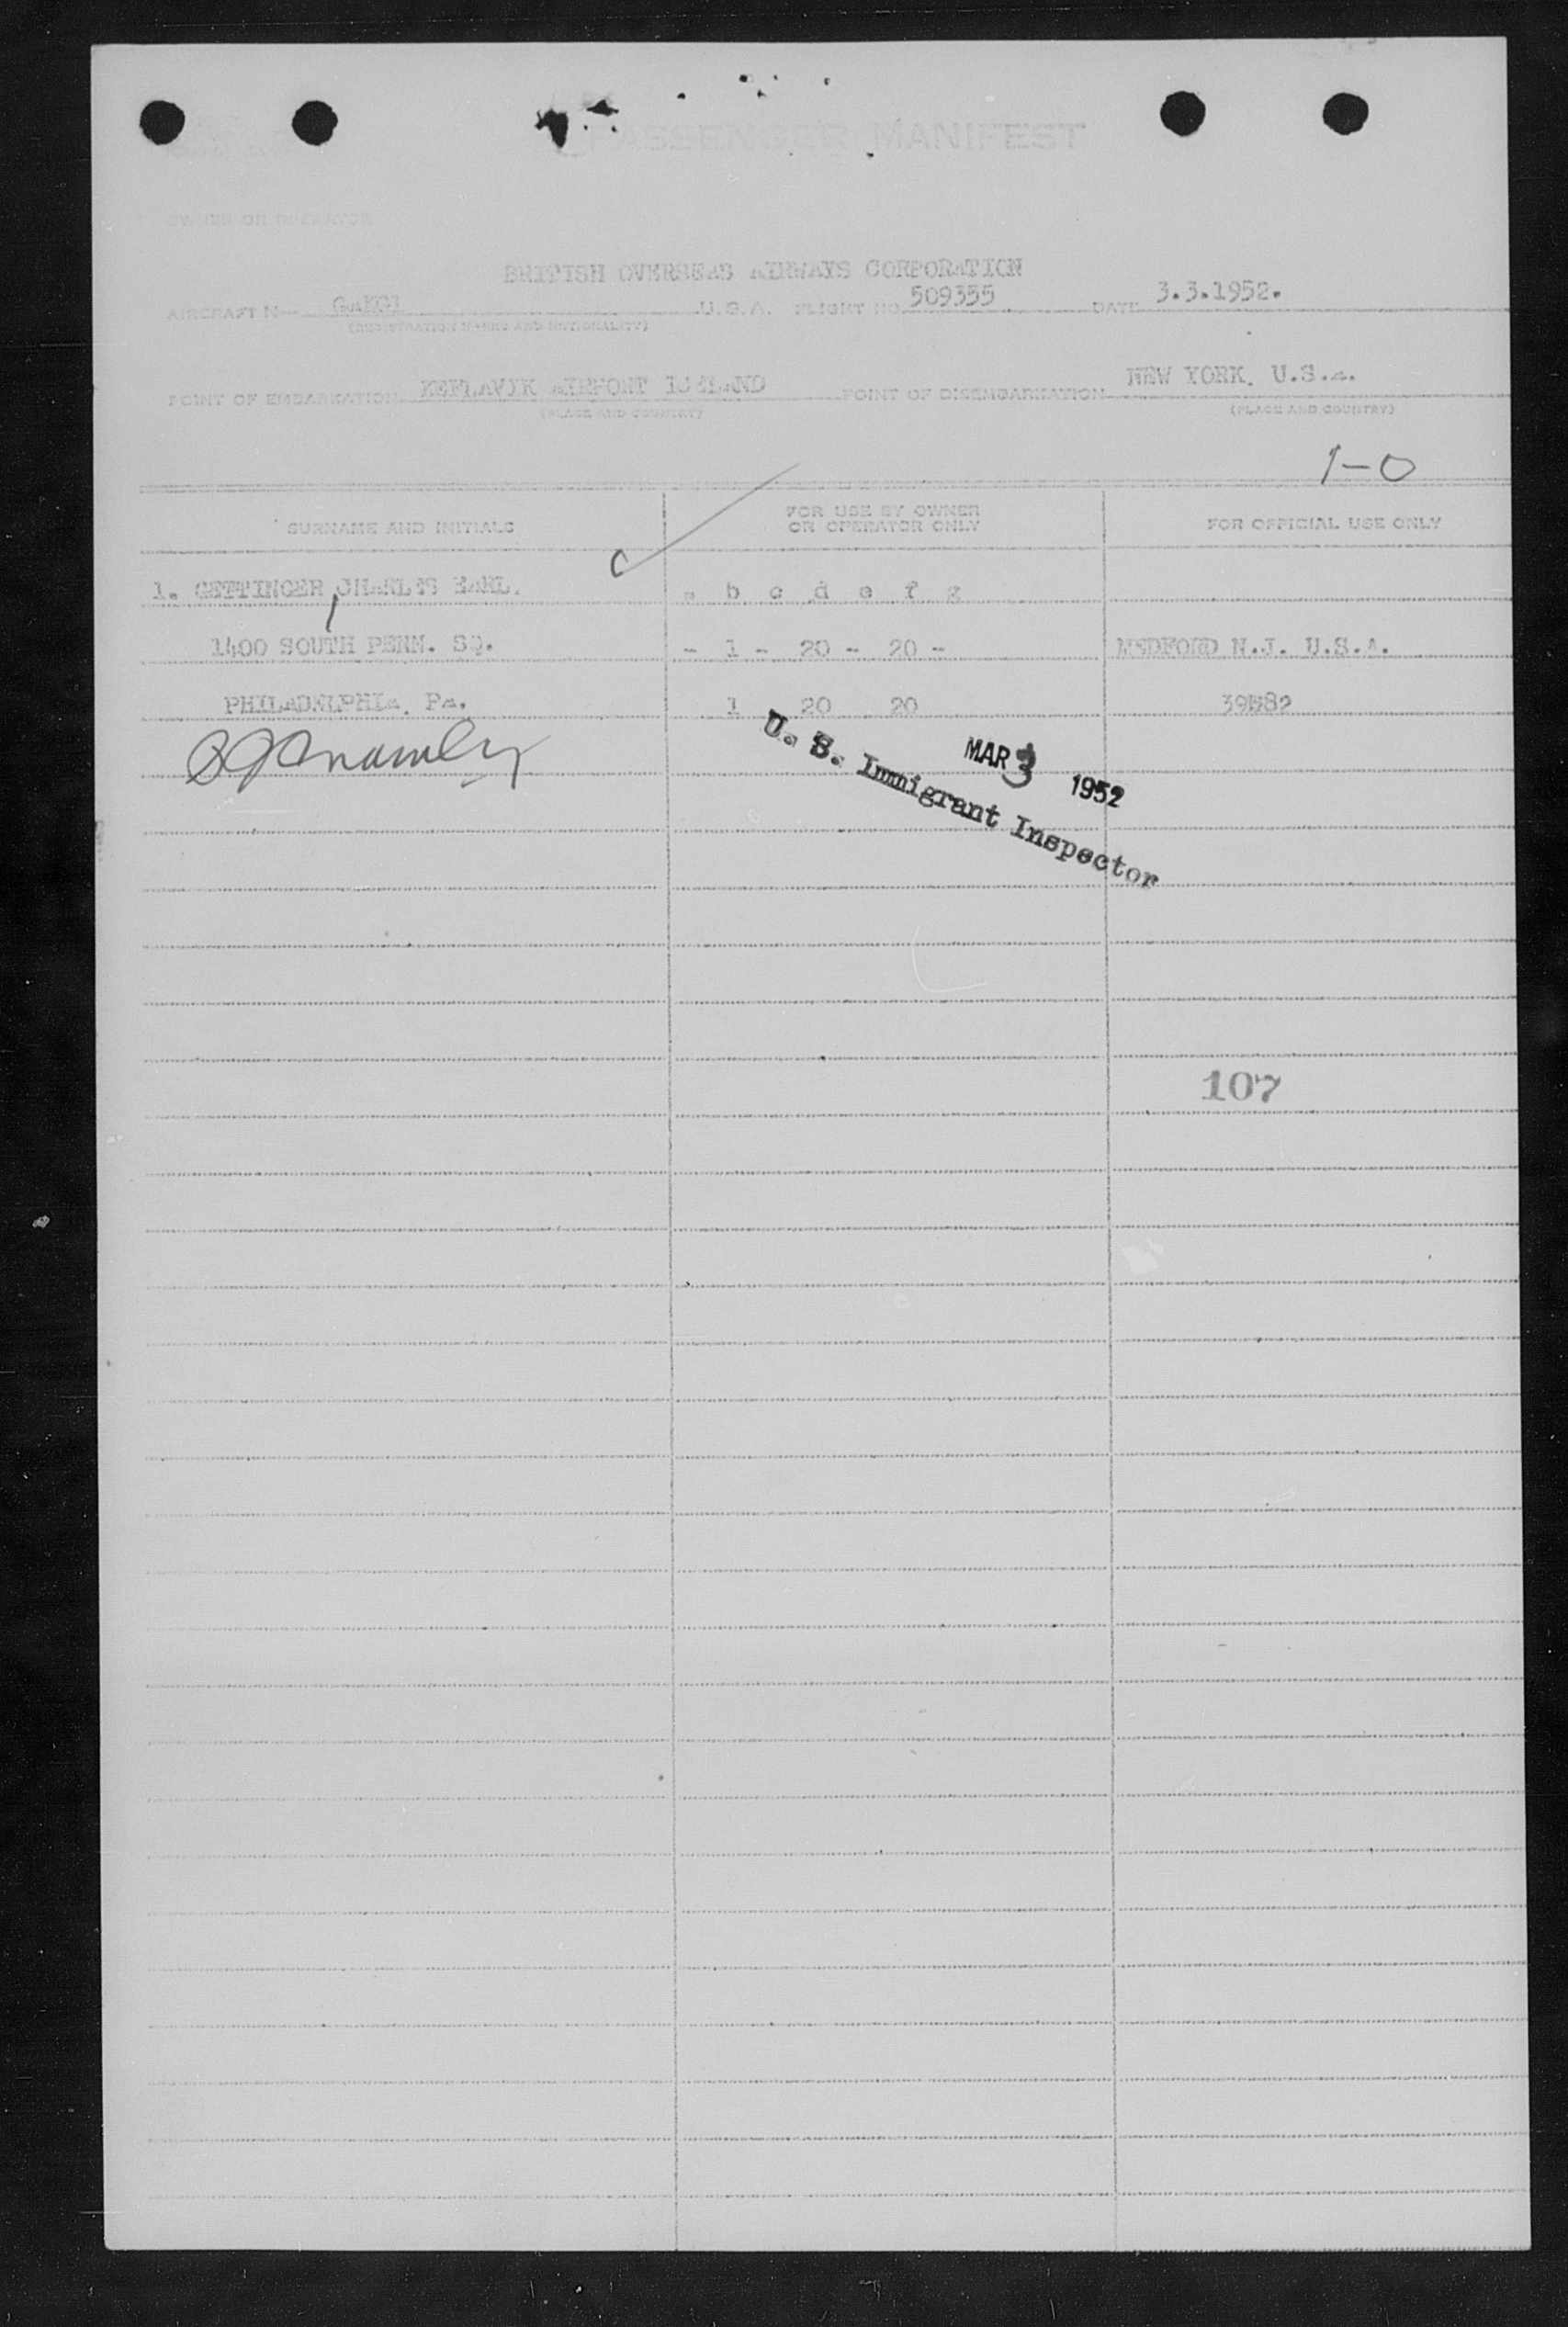 PASSENGER MANIFEST
OWNER OR OPERATOR
BRITISH OVERSEAS AIRWAYS CORPORATION
AIRCRAFT U.S.A. FLIGHT NO. 509355 DATE 3.3.1952.
(REGISTRATION MARKS AND NATIONALITY)
POINT OF EMBARKATION KEFLAVIK AIRPORT ICELAND POINT OF DISEMBARKATION NEW YORK. U.S.A.
(PLACE AND COUNTRY) (PLACE AND COUNTRY)
1-0
SURNAME AND INITIALS FOR USE BY OWNER OR OPERATOR ONLY FOR OFFICIAL USE ONLY
1. GETTINGER, CHARLES EARL. a b c d e f g
1400 SOUTH PENN. SQ. - 1 - 20 - 20 - MEDFORD N.J. U.S.A.
PHILADELPHIA. PA. 1 20 20
MAR 3 1952
U. S. Immigrant Inspector
107